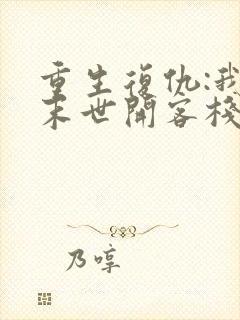 重生復仇:我
末世開客棧
乃啍